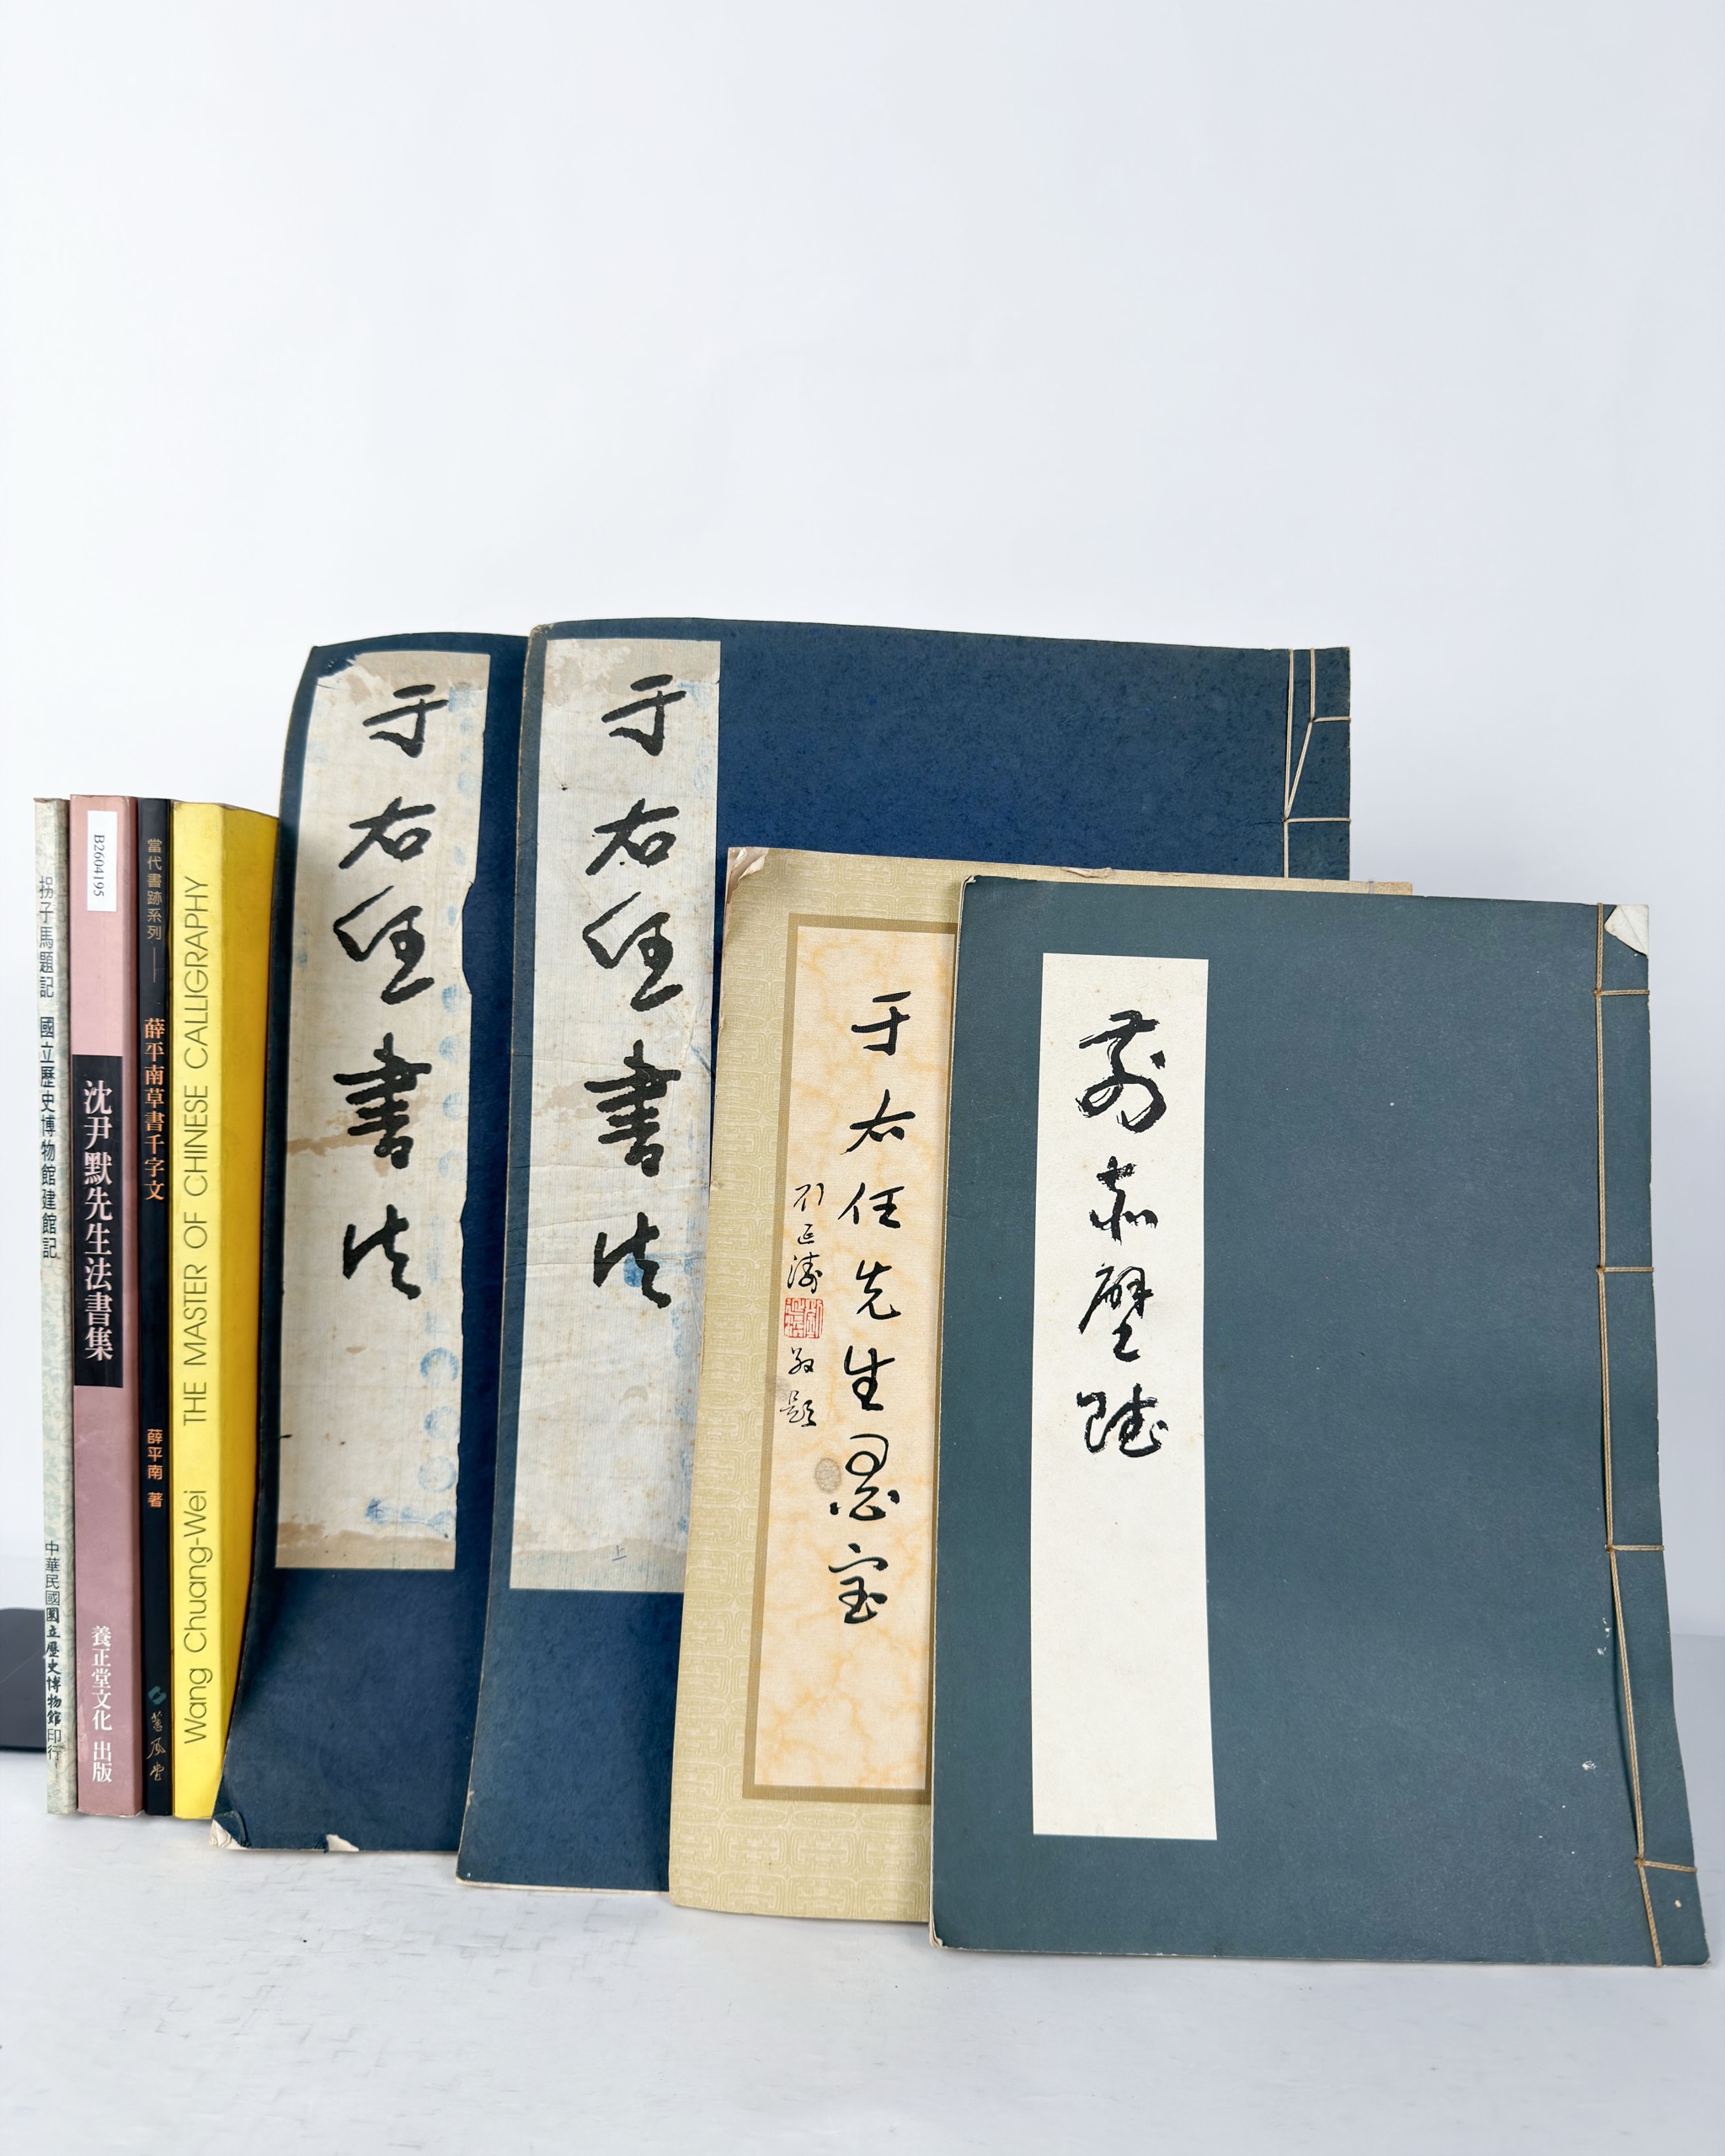 拐子馬題記 國立歷史博物館建館記
中華民國國立歷史博物館印行
B2604195
沈尹默先生法書集
養正堂文化 出版
當代書跡系列
薛平南草書千字文
薛平南 著
蕙風堂
Wang Chuang-Wei THE MASTER OF CHINESE CALLIGRAPHY
于右任書法
于右任書法
上
于右任先生墨宝
劉延濤
敬題
前赤壁賦